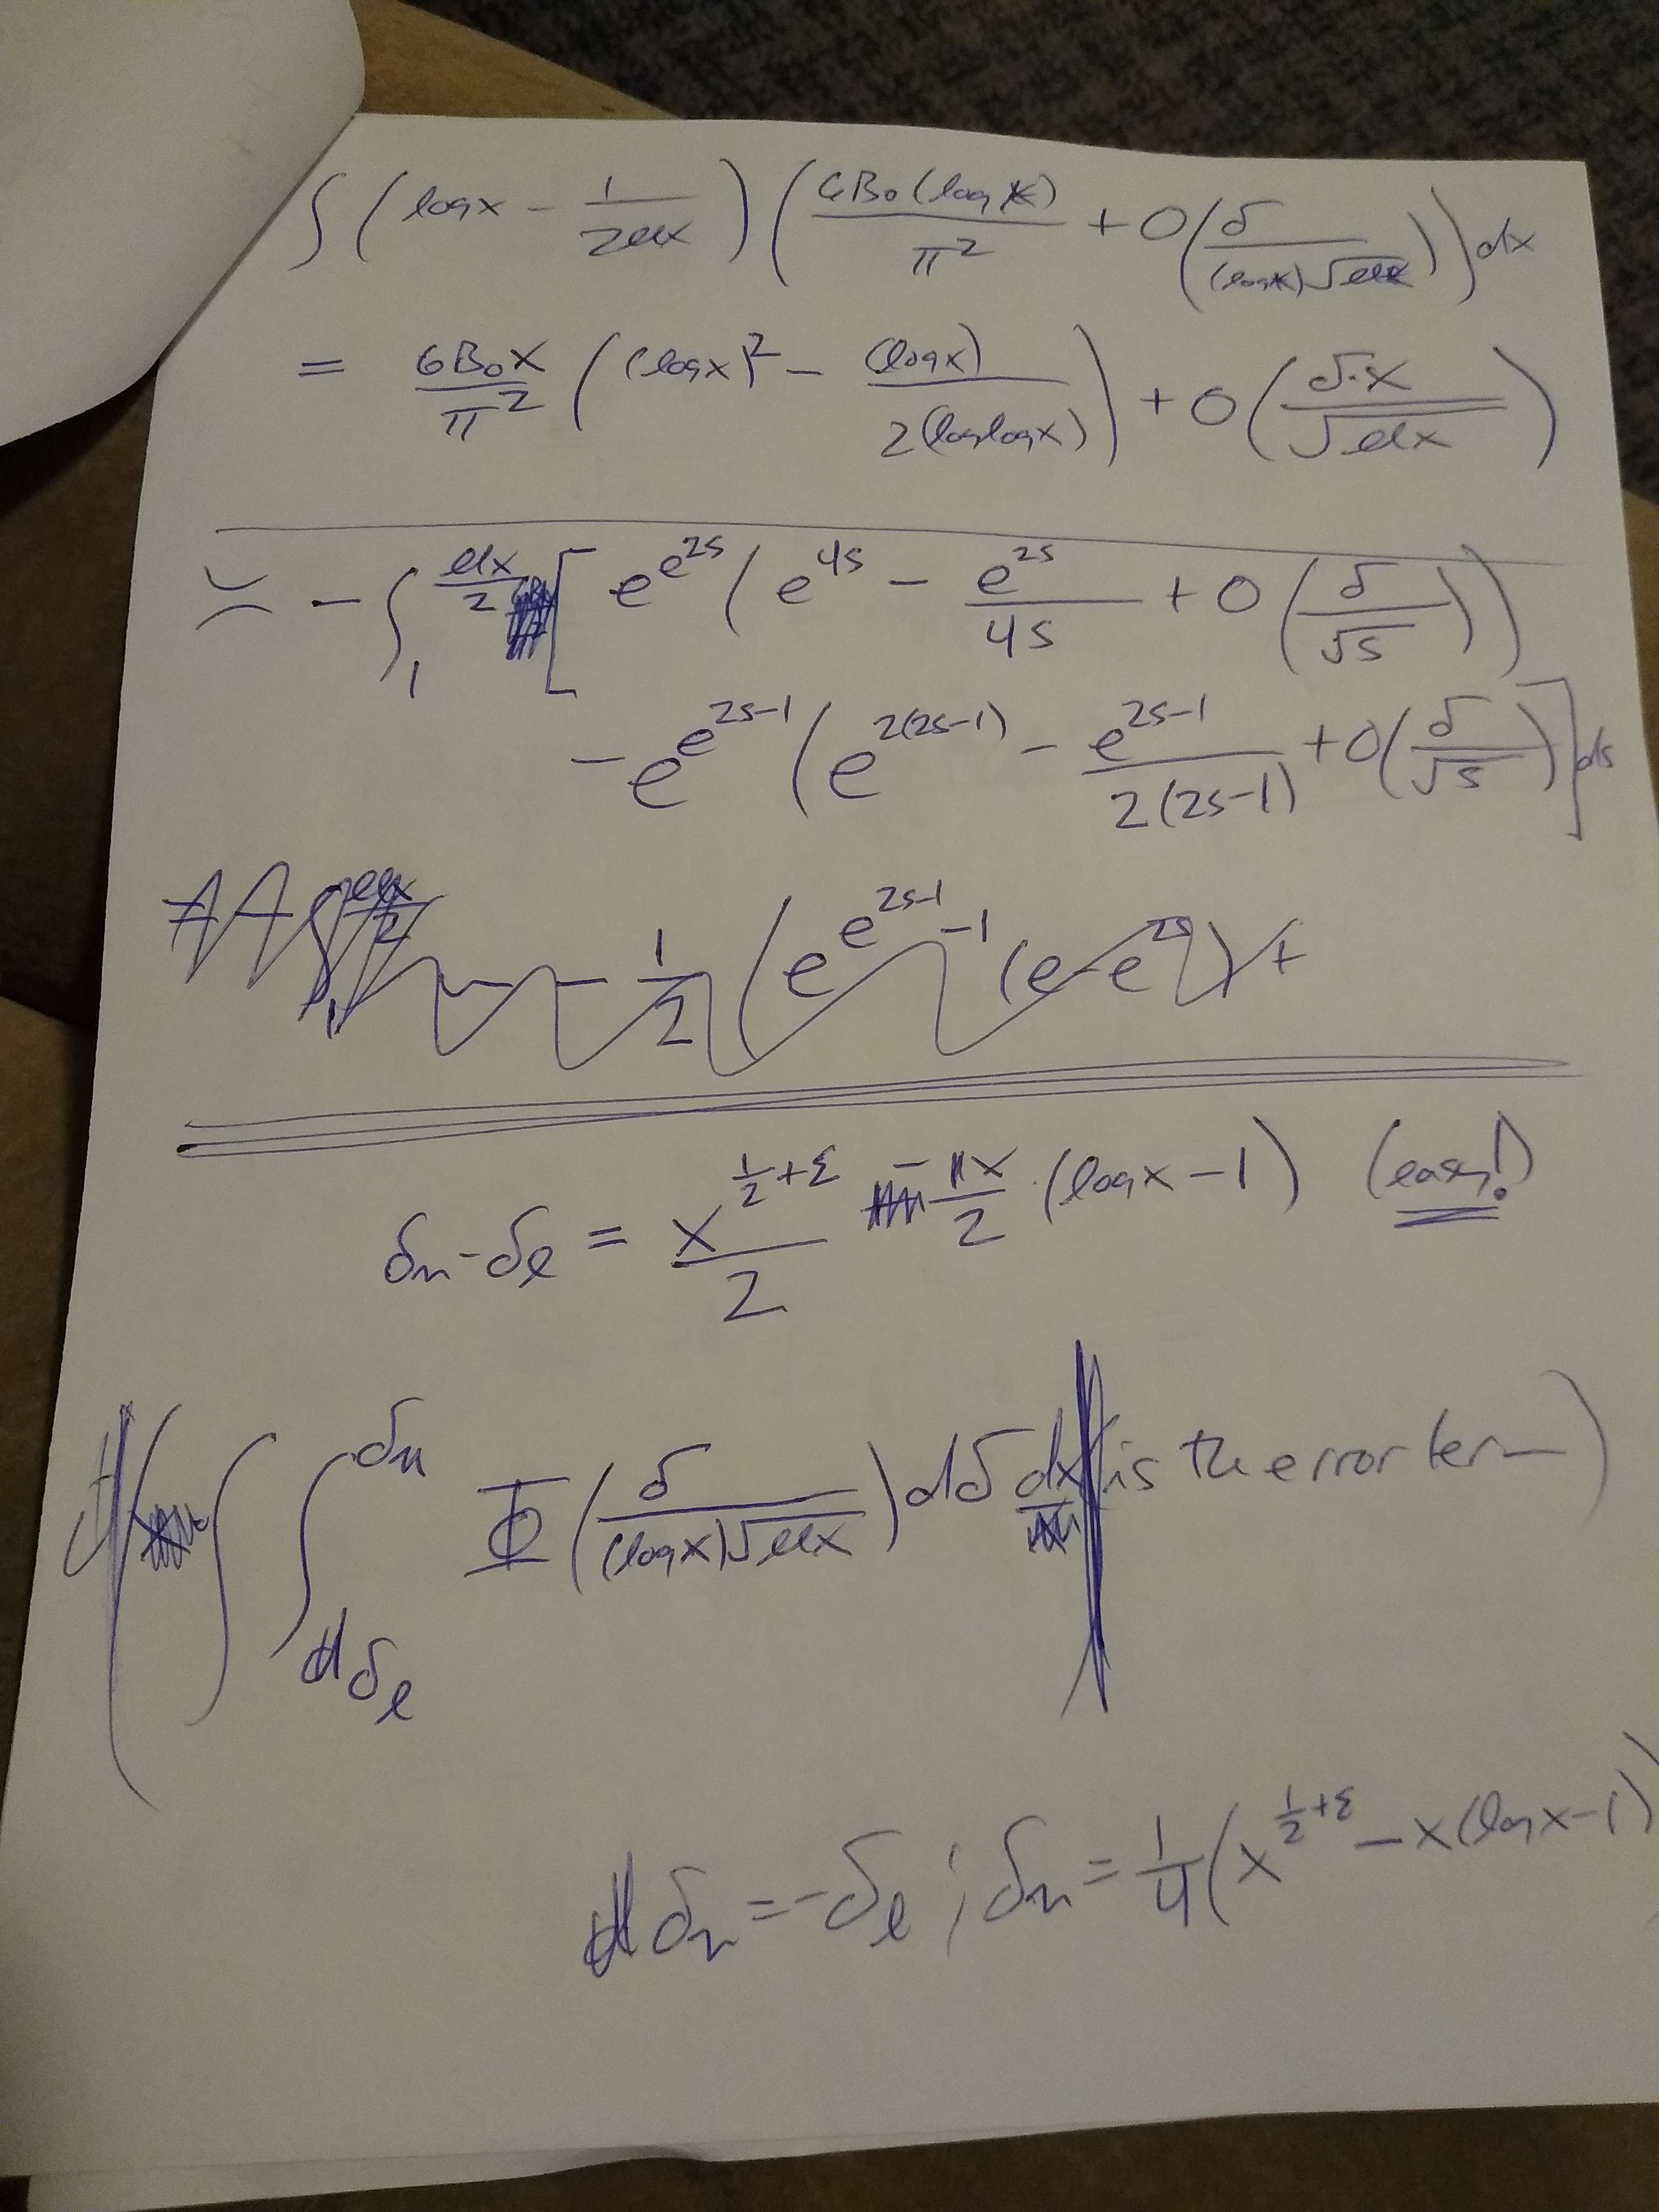 ∫ (log x − 1/(2ℓℓx)) (6B₀(log x)/π² + O(δ/((log x)√ℓℓx))) dx
= 6B₀x/π² ((log x)² − (log x)/(2(log log x))) + O(δ·x/√ℓℓx)
≍ − ∫₁^(ℓℓx/2) [e^(e^(2s)) (e^(4s) − e^(2s)/(4s) + O(δ/√s))
− e^(e^(2s−1)) (e^(2(2s−1)) − e^(2s−1)/(2(2s−1)) + O(δ/√s))] ds
− 1/2 (e^(e^(2s−1)−1) (e−e^(2s)) +
δu − δℓ = x^(1/2+ε)/2 − πx/2 · (log x − 1) (easy!)
(∫ ∫_(δℓ)^(δu) Φ(δ/((log x)√ℓℓx)) dδ dx is the error term)
δu = −δℓ ; δu = 1/4 (x^(1/2+ε) − x(log x − 1)